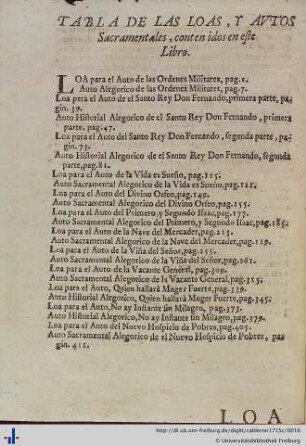 TABLA DE LAS LOAS, Y AVTOS
Sacramentales, contenidos en este
Libro.
LOA para el Auto de las Ordenes Militares, pag.1.
Auto Alegorico de las Ordenes Militares, pag.7.
Loa pera el Auto de el Santo Rey Don Fernando, primera parte, pa-
gin. 39.
Auto Historial Alegorico de el Santo Rey Don Fernando, primera
parte, pag.47.
Loa para el Auto del Santo Rey Don Fernando, segunda parte, pa-
gin. 73.
Auto Historial Alegorico de el Santo Rey Don Fernando, segunda
parte, pag.81.
Loa para el Auto de la Vida es Sueño, pag.115:
Auto Sacramental Alegorico de la Vida es Sueño, pag.121.
Loa para el Auto del Divino Orfeo, pag.149.
Auto Sacramental Alegorico del Divino Orfeo, pag.155.
Loa para el Auto del Primero, y Segundo Isaac, pag.177.
Auto Sacramental Alegorico del Primero, y Segundo Isaac, pag.185.
Loa para el Auto de la Nave del Mercader, pag.213.
Auto Sacramental Alegorico de la Nave del Mercader, pag.219.
Loa para el Auto de la Viña del Señor, pag.255.
Auto Sacramental Alegorico de la Viña del Señor, pag.261.
Loa para el Auto de la Vacante General, pag.309.
Auto Sacramental Alegorico de la Vacante General, pag.315.
Loa para el Auto, Quien hallará Muger Fuerte, pag.339.
Auto Historial Alegorico, Quien hallará Muger Fuerte, pag.345.
Loa para el Auto, No ay Instante sin Milagro, pag.373.
Auto Historial Alegorico, No ay Instante sin Milagro, pag.379.
Loa para el Auto del Nuevo Hospicio de Pobres, pag.405.
Auto Sacramental Alegorico de el Nuevo Hospicio de Pobres, pa-
gin. 411.
LOA
http://dl.ub.uni-freiburg.de/diglit/calderon1715c/0018
© Universitätsbibliothek Freiburg